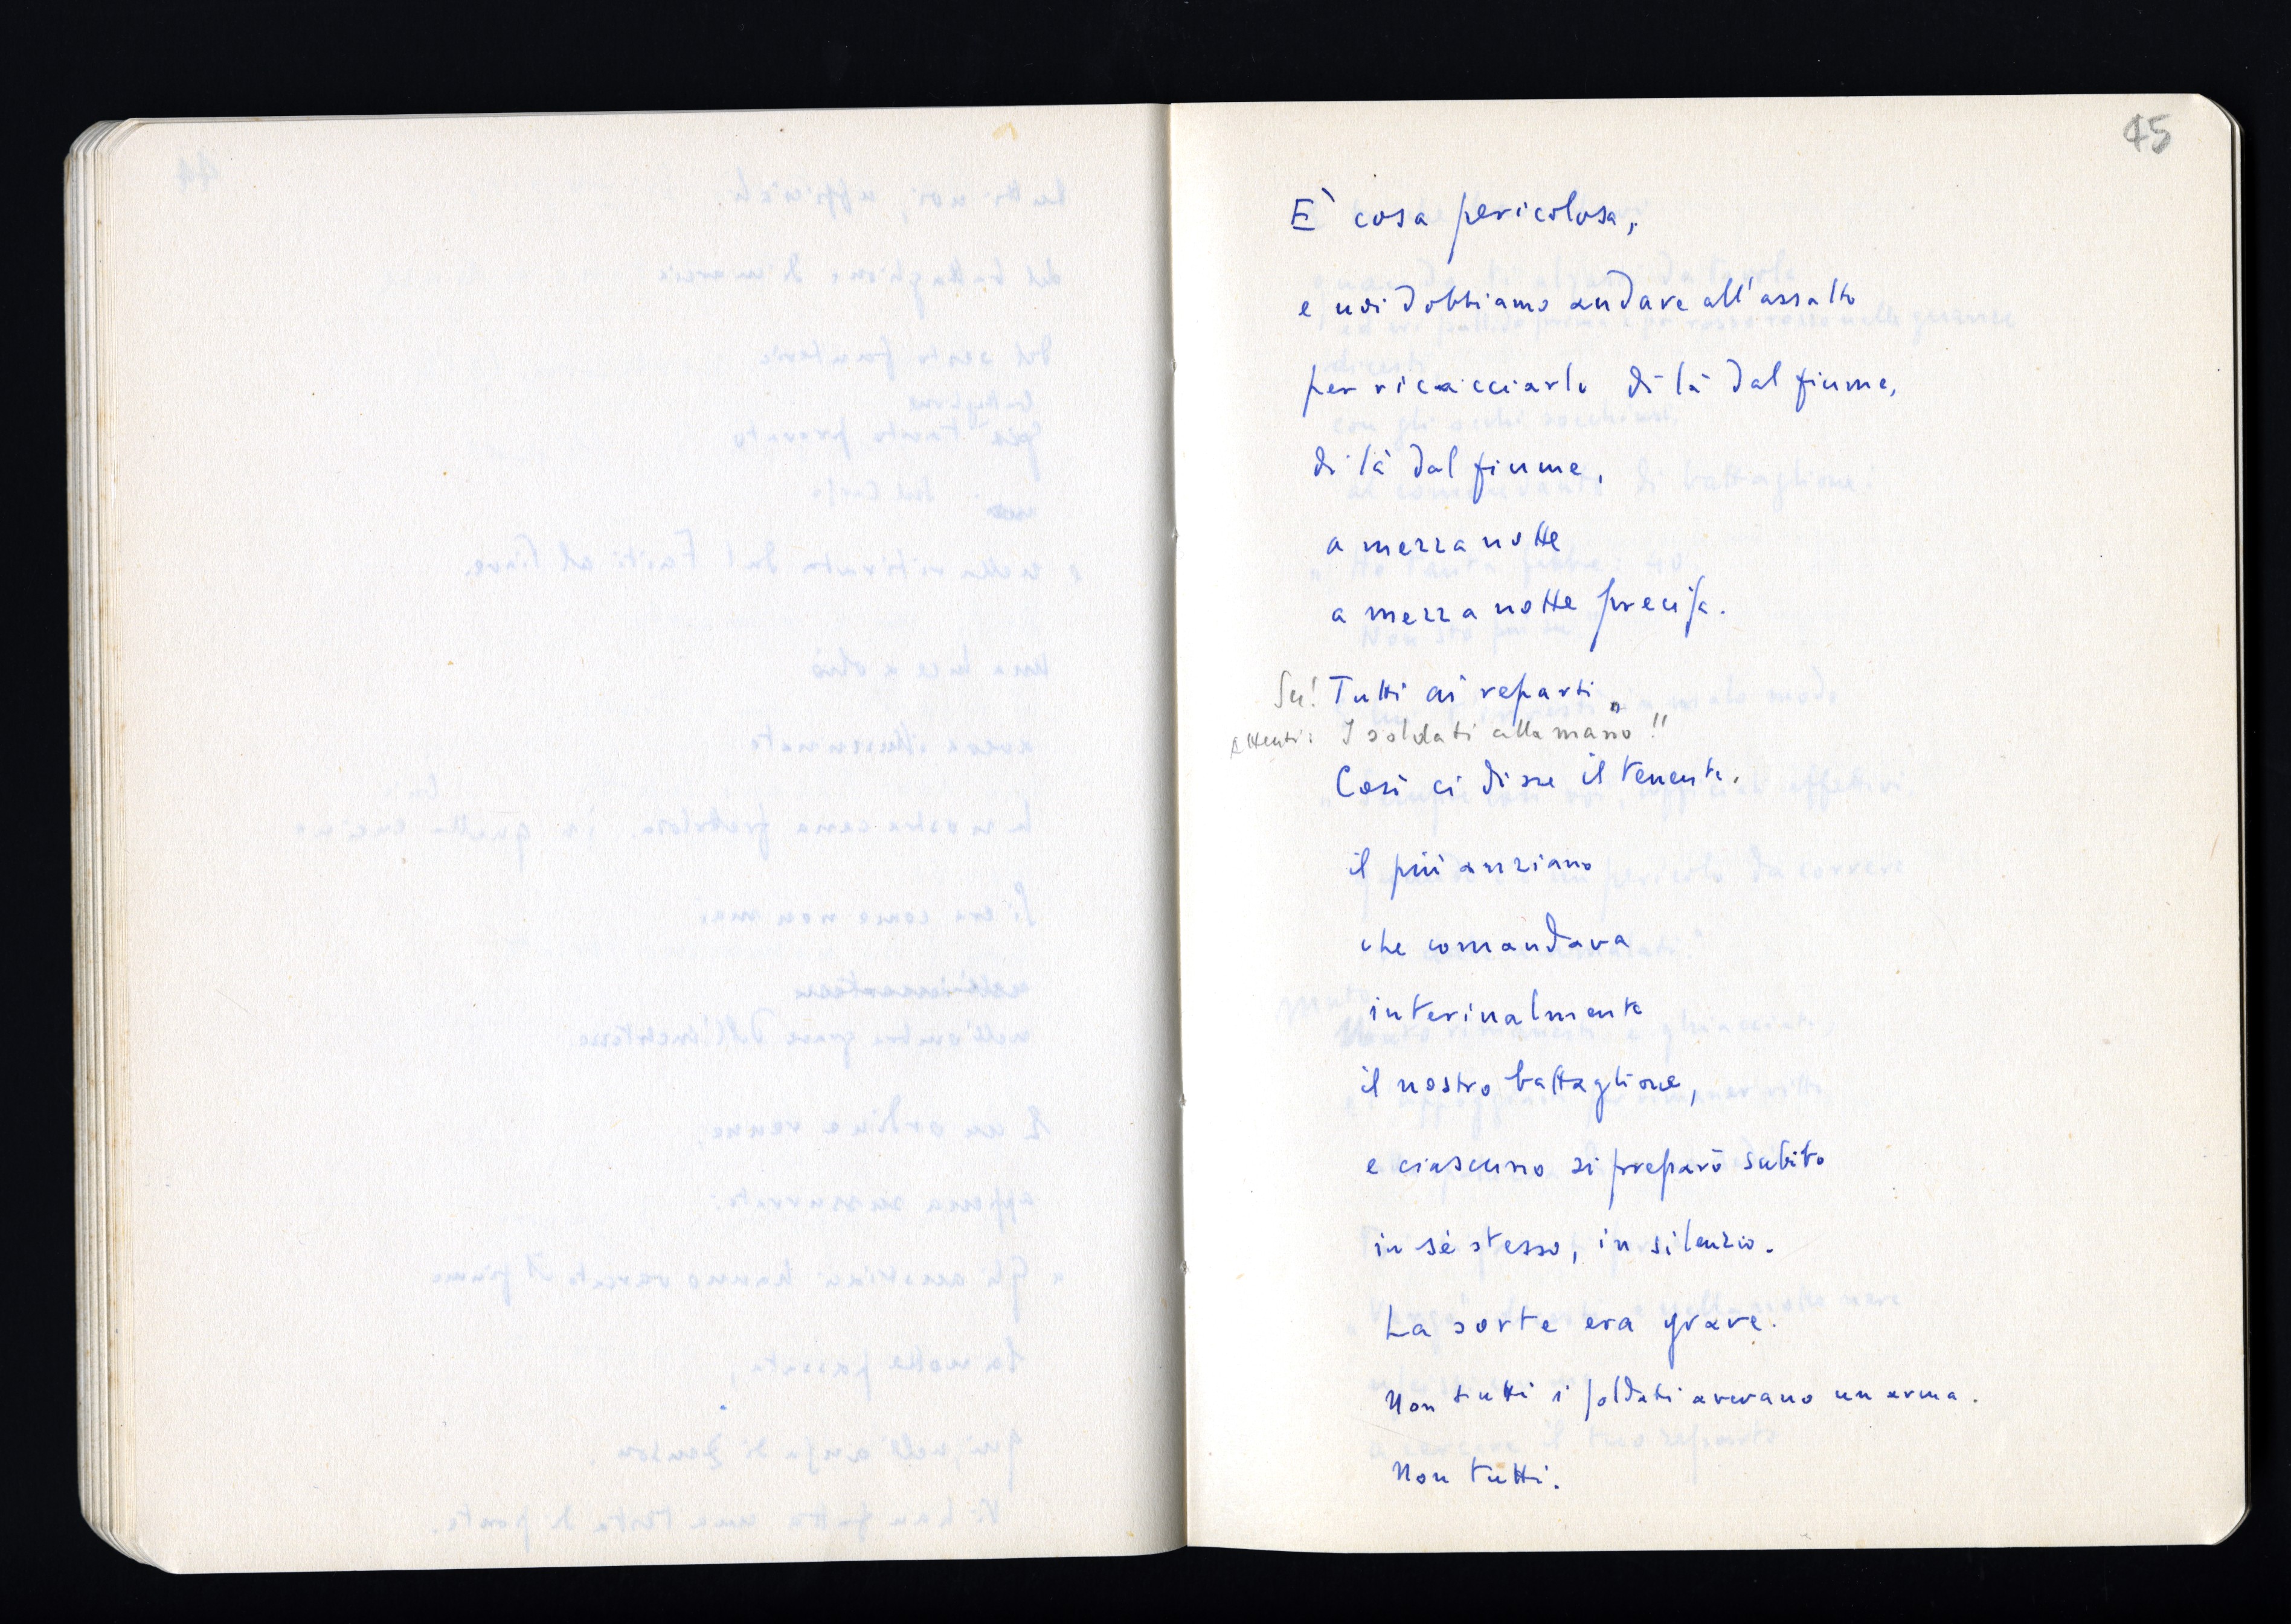 45
E' cosa pericolosa,
e noi dobbiamo andare all'assalto
per ricacciarlo di là dal fiume,
di là dal fiume,
a mezza notte
a mezza notte precisa.
Su! Tutti ai reparti„
Attenti: I soldati alla mano!!
Così ci disse il tenente,
il più anziano
che comandava
interinalmente
il nostro battaglione,
e ciascuno si preparò subito
in sè stesso, in silenzio.
La sorte era grave.
Non tutti i soldati avevano un arma.
Non tutti.